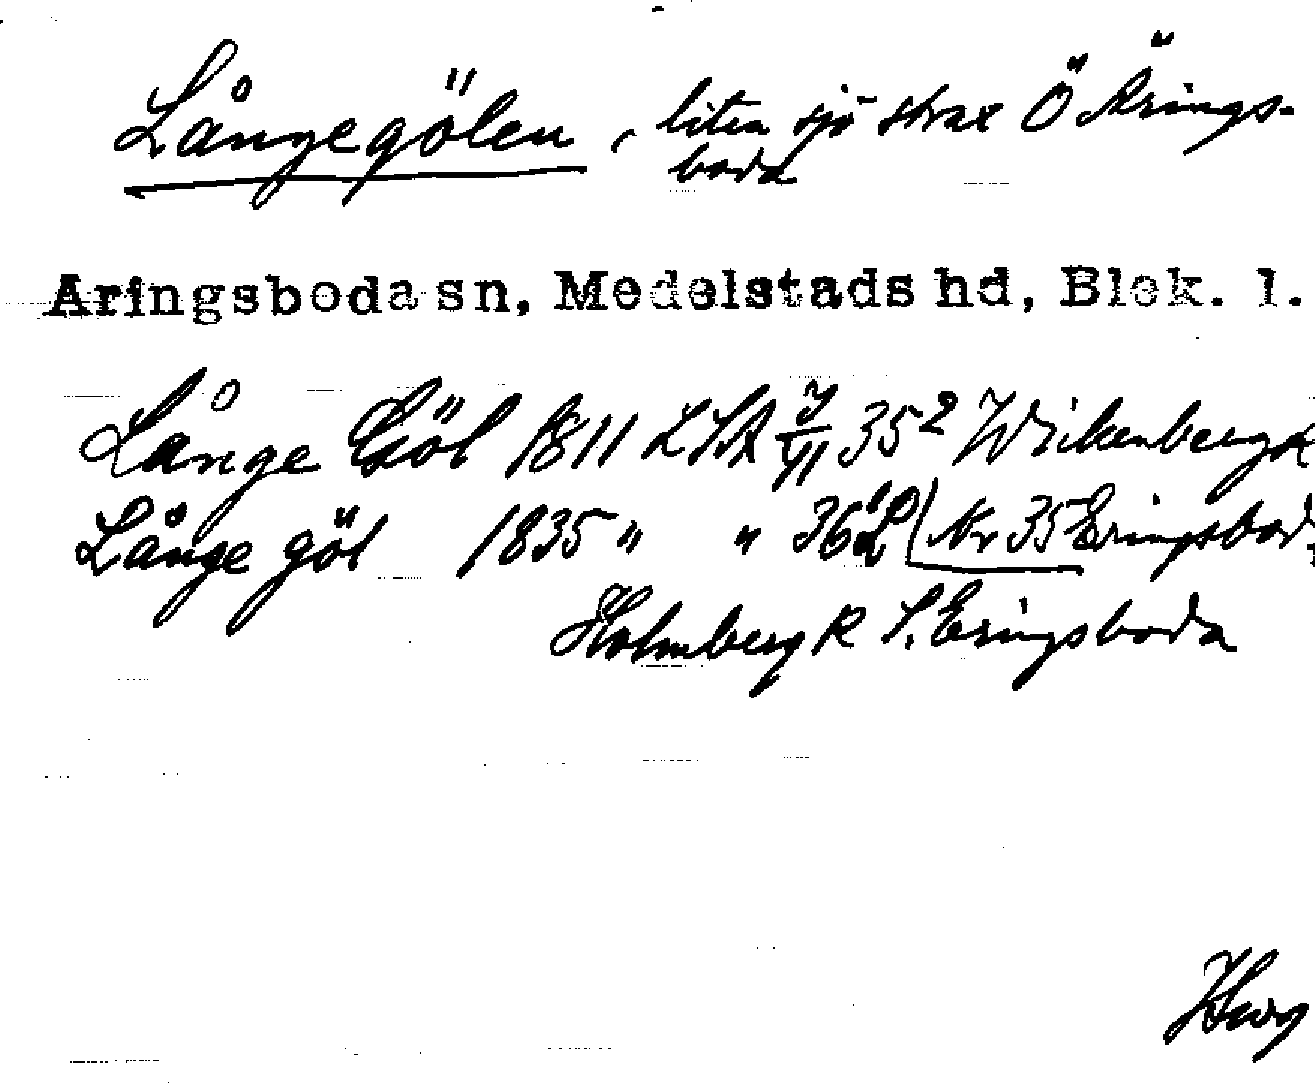 Långegölen, liten sjö strax Ö Ärings-
boda
Aringsboda sn, Medelstads hd, Blek. l.
Långe Göl 1811 LSA 35² Wikenberg K
Långe göl 1835 " " 36 (Nr 35 Eringsbod
Holmberg R S. Eringsboda